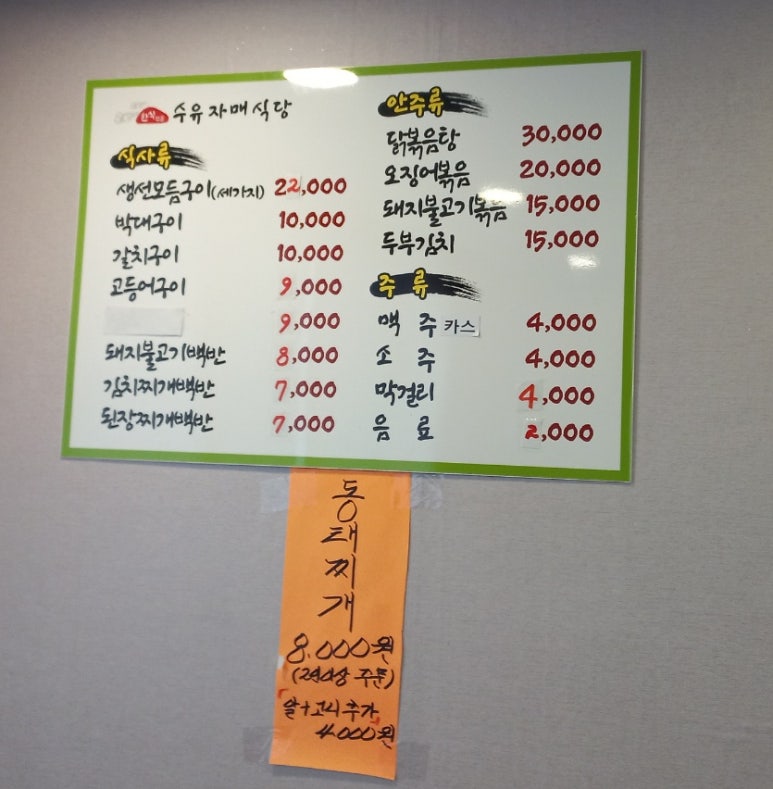 한식 수유 자매 식당
식사류
생선모듬구이(세가지) 22,000
박대구이 10,000
갈치구이 10,000
고등어구이 9,000
9,000
돼지불고기백반 8,000
김치찌개백반 7,000
된장찌개백반 7,000
안주류
닭볶음탕 30,000
오징어볶음 20,000
돼지불고기볶음 15,000
두부김치 15,000
주 류
맥 주 카스 4,000
소 주 4,000
막걸리 4,000
음 료 2,000
동태찌개
8.000원
(2인이상 주문)
알+고니 추가
4.000원